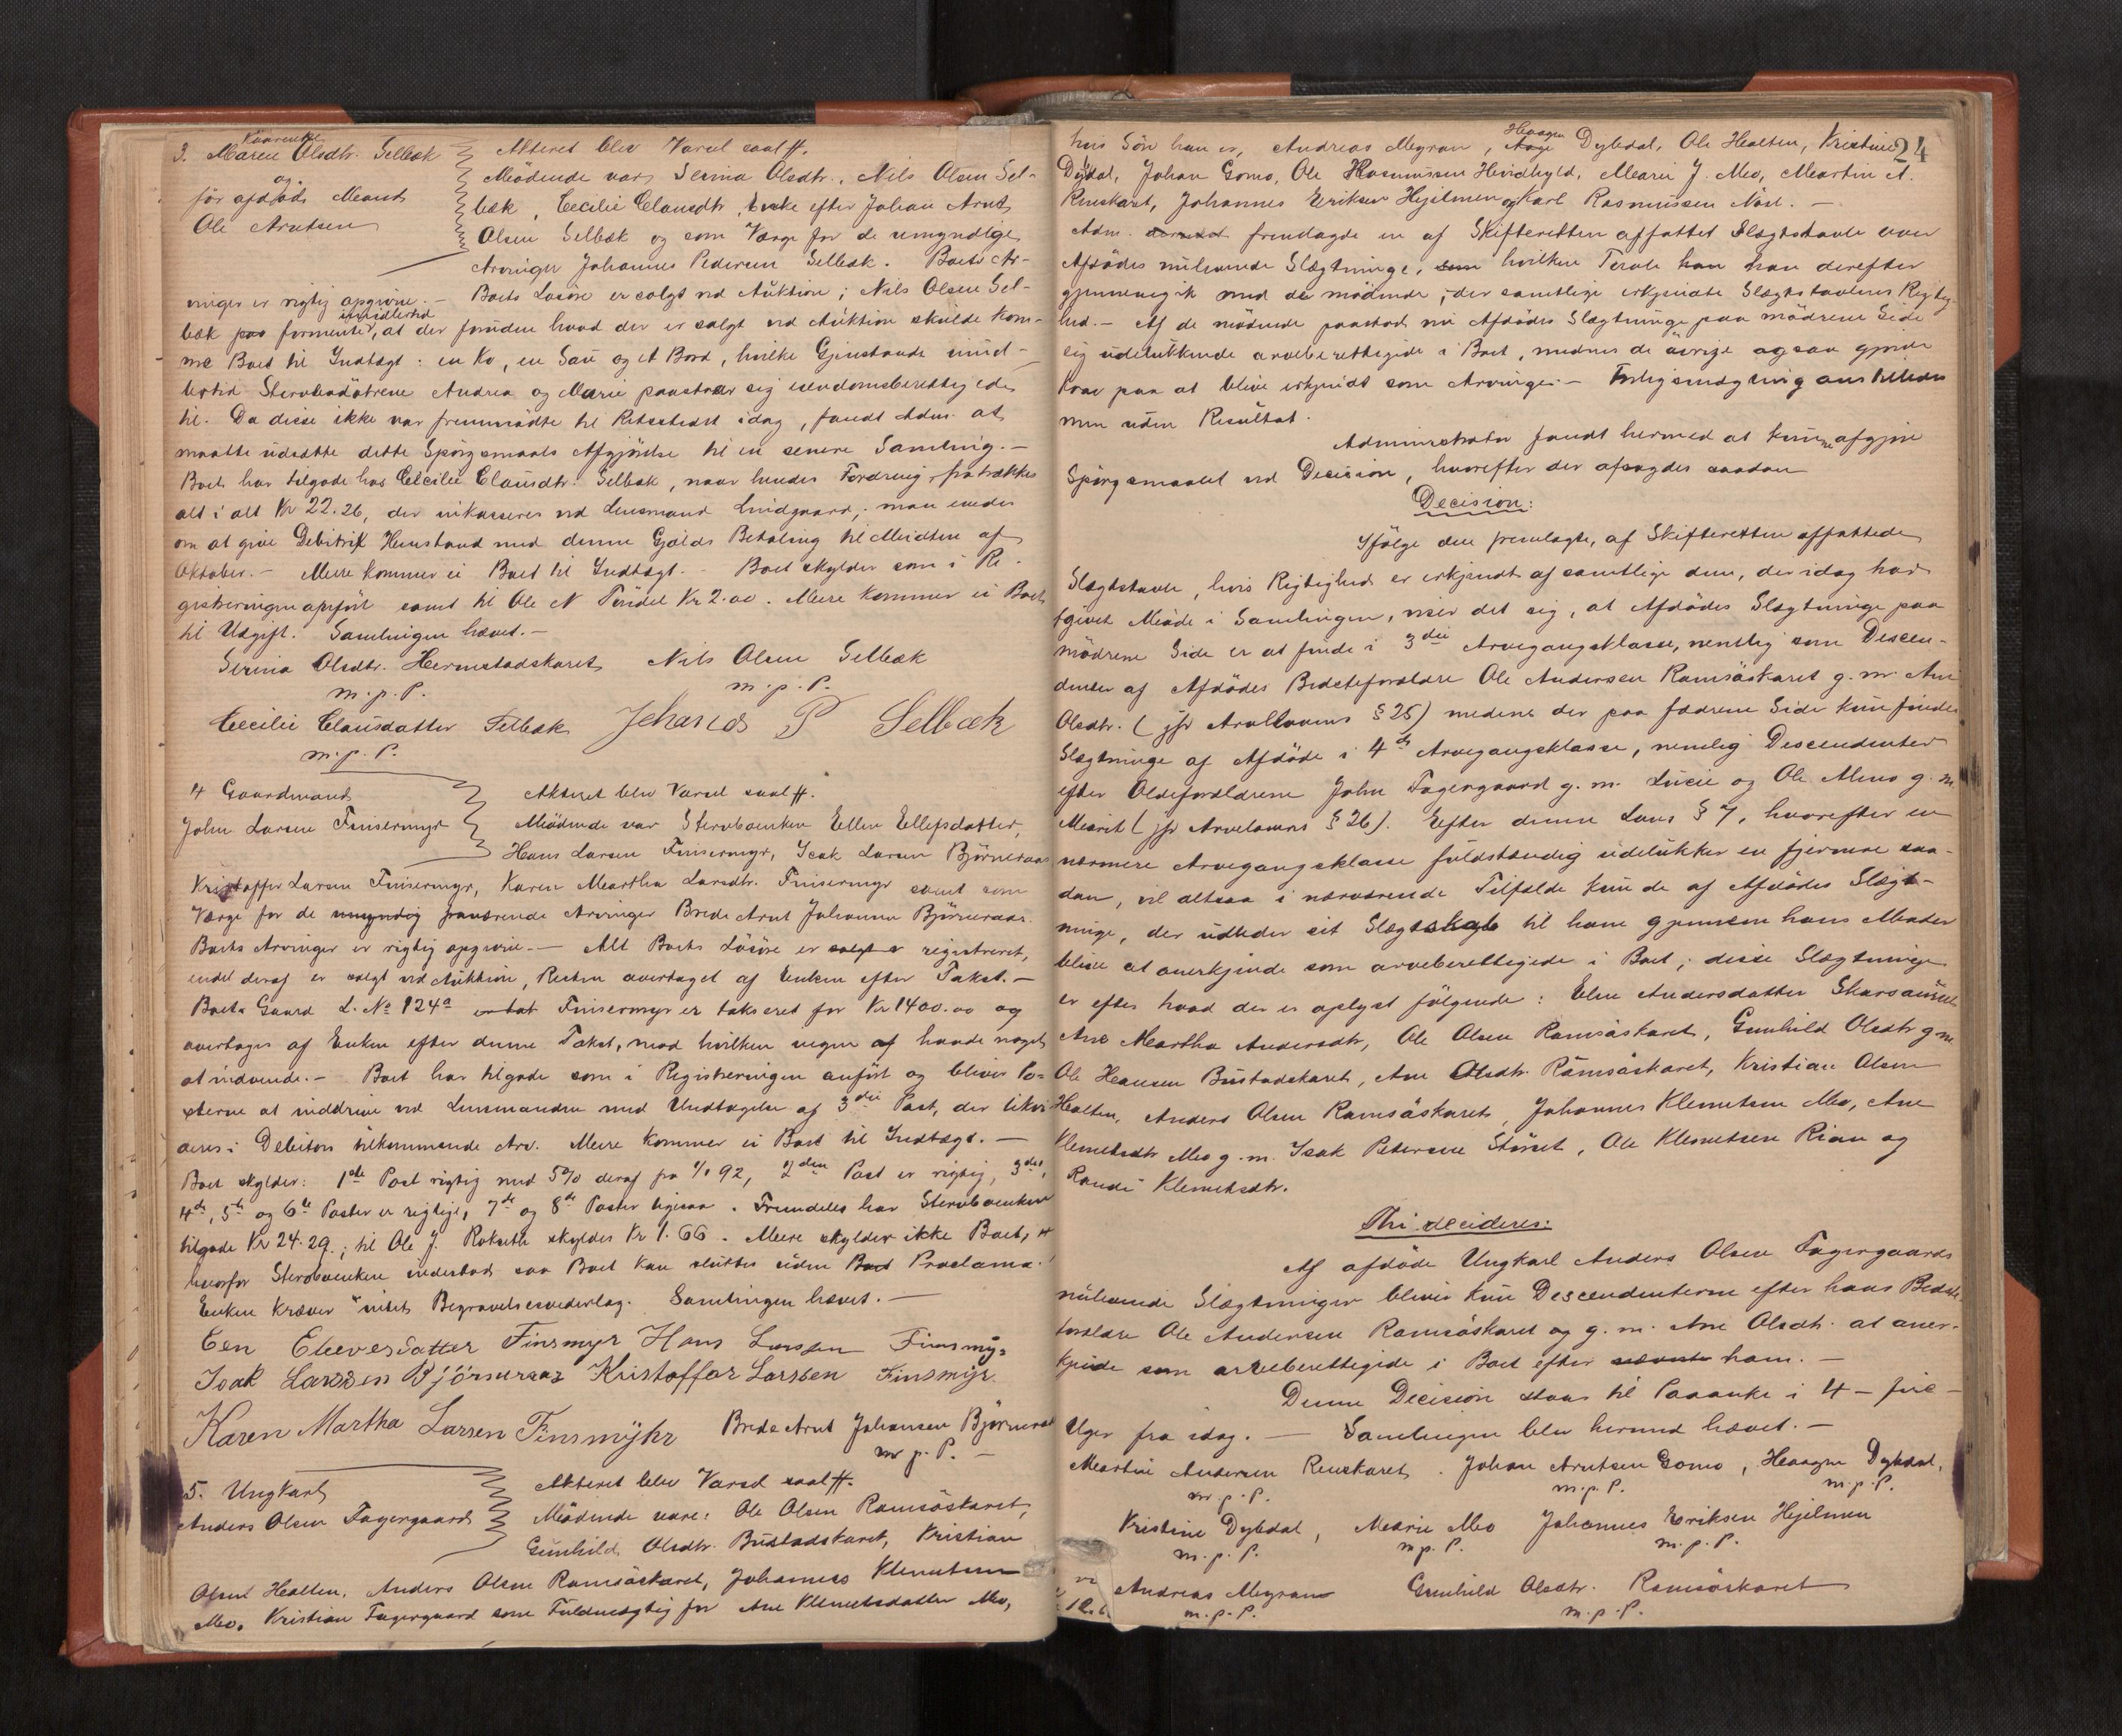 3. Maren Olsdtr. Selbæk
og
før afdøde Mand
Ole Arntsen
Akteret blev Varsel saal #.
Mødende var Serina Olsdtr., Nils Olsen Sel-
bæk, Cecilie Clausdtr, Enke efter Johan Arnt
Olsen Selbæk og som Værge for de umyndige
Arvinger Johannes Pedersen Selbæk. Boets Ar-
vinger er rigtig opgivne. – Boets Løsøre er solgt ved Auktion; Nils Olsen Sel-
bæk paa formente imidlertid, at der foruden hvad der er solgt ved Auktion skulde kom-
me Boet til Indtægt: en Ko, en Sau og et Bord, hvilke Gjenstande imid-
lertid Stervbodøtrene Andrea og Marie paastaar sig eiendomsberettigede
til. Da disse ikke var fremmødte til Retsstedet idag, fandt Adm. at
maatte udsætte dette Spørgsmaals Afgjørelse til en senere Samling. –
Boet har tilgode hos Cecilie Clausdtr. Selbæk, naar hendes Fordring fratrækkes
alt i alt Kr 22.26, der inkasseres ved Lensmand Lindgaard; man enedes
om at give Debitrix Henstand med denne Gjælds Betaling til Midten af
Oktober. – Mere kommer ei Boet til Indtægt. – Boet skylder som i Re-
gistreringen anført samt til Ole N Tendel Kr 2.00. Mere kommer ei Boet
til Udgift. Samlingen hævet. –
Serina Olsdtr. Hermstadskaret Nils Olsen Selbæk
m.p.P. m.p.P.
Cecilie Clausdatter Selbæk Johanes P Selbæk
m.p.P.
4 Gaardmand
John Larsen Finsermyr
Akteret blev Varsel saal #.
Mødende var Stervboenken Ellen Ellefsdatter,
Hans Larsen Finsermyr, Isak Larsen Bjørneraas
Kristoffer Larsen Finsermyr, Karen Martha Larsdtr. Finsermyr samt som
Værge for de umyndig fraværende Arvinger Brede Arnt Johansen Bjørneraas.
Boets Arvinger er rigtig opgivne. – Alt Boets Løsøre er solgt er registreret,
endel deraf er solgt ved Auktion, Resten overtaget af Enken efter Takst. –
Boets Gaard L. No 124a er tat Finsermyr er takseret for Kr 1400.00 og
overtages af Enken efter denne Takst, mod hvilken ingen af havde noget
at indvende. – Boet har tilgode som i Registreringen anført og bliver Po-
sterne at inddrive ved Lensmanden med Undtagelse af 3die Post, der likvi-
deres i Debitors tilkommende Arv. Mere kommer ei Boet til Indtægt. –
Boet skylder: 1ste Post rigtig med 5% deraf fra 1/1 92, 2den Post er rigtig, 3die,
4de, 5te og 6te Poster er rigtige, 7de og 8de Poster ligesaa. Fremdeles har Stervboenken
tilgode Kr 24.29.; til Ole J. Rokseth skyldes Kr 1.66. Mere skylder ikke Boet,
hvorfor Stervboenken indestod saa Boet kan sluttes uden Boet Proclama.
Enken kræver intet Begravelsesvederlag. Samlingen hævet. –
Een Eleevesdatter Finsmyr Hans Larssen Finsmyr
Isak Larssen Bjørneraas Kristoffer Larssen Finsmyr
Karen Martha Larsen Finsmyhr Brede Arnt Johansen Bjørneraas
m.p.P. –
5. Ungkarl
Anders Olsen Fagergaard
Akteret blev Varsel saal #.
Mødende vare: Ole Olsen Ramsøskaret,
Gunhild Olsdtr. Bustadskaret, Kristian
Olsen Halten, Anders Olsen Ramsøskaret, Johannes Klemetsen
Mo, Kristian Fagergaard som Fuldmægtig for Ane Klemetsdatter Mo,
24
hvis Søn han er, Andreas Myran, Aage Haagen Dybdal, Ole Halten, Kristine
Dybdal, Johan Gomo, Ole Rasmussen Hindhyld, Marie J. Mo, Martin A.
Renskaret, Johannes Eriksen Hjelmen og Karl Rasmussen Næs. –
Adm. fremlagde en af Skifteretten affattet Slægtstavle over
Afdødes nulevende Slægtninge, som hvilken Tavle han han derefter
gjennemgik med de mødende, der samtlige erkjendte Slægtstavlens Rigtig-
hed. – Af de mødende paastod nu Afdødes Slægtninge paa mødrene Side
sig udelukkende arveberettigede i Boet, medens de øvrige ogsaa gjorde
Krav paa at blive erkjendt som Arvinger. – Forligsmægling anstilledes
men uden Resultat.
Administrator fandt hermed at kunne afgjøre
Spørgsmaalet ved Decision, hvorefter der afsagdes saadan
Decision:
Ifølge den fremlagte, af Skifteretten affattede
Slægtstavle, hvis Rigtighed er erkjendt af samtlige dem, der idag har
givet Møde i Samlingen, viser det sig, at Afdødes Slægtninge paa
mødrene Side er at finde i 3die Arvegangsklasse, nemlig som Descen-
denter af Afdødes Bedsteforældre Ole Andersen Ramsøskaret g. m. Ane
Olsdtr. (jfr Arvelovens § 25) medens der paa fædrene Side kun findes
Slægtninge af Afdøde i 4de Arvegangsklasse, nemlig Descendenter
efter Oldeforældrene John Fagergaard g. m. Lucie og Ole Mo g. m
Marit (jfr Arvelovens § 26). Efter denne Lovs § 7, hvorefter en
nærmere Arvegangsklasse fuldstændig udelukker en fjernere saa-
dan, vil altsaa i nærværende Tilfælde kun de af Afdødes Slægt-
ninge, der udleder sit Slægtskab til ham gjennem hans Moder
blive at anerkjende som arveberettigede i Boet; disse Slægtninge
er efter hvad der er oplyst følgende: Elen Andersdatter
Ane Martha Andersdtr, Ole Olsen Ramsøskaret, Gunhild Olsdtr g m
Ole Hansen Bustadskaret, Ane Olsdtr. Ramsøskaret, Kristian Olsen
Halten, Anders Olsen Ramsøskaret, Johannes Klemetsen Mo, Ane
Klemetsdtr Mo g. m. Isak Petersen Størset, Ole Klemetsen Rian og
Randi Klemetsdtr.
Thi decideres:
Af afdøde Ungkarl Anders Olsen Fagergaards
nulevende Slægtninger bliver kun Descendenterne efter hans Bedste-
forældre Ole Andersen Ramsøskaret og g. m. Ane Olsdtr. at aner-
kjende som arveberettigede i Boet efter ham. –
Denne Decision staar til Paaanke i 4 – fire –
Uger fra idag. – Samlingen blev hermed hævet. –
Martin Andersen Renskaret. Johan Arntsen Gomo, Haagen Dybdal,
m.p.P. m.p.P. m.p.P.
Kristine Dybdal, Marie Mo Johannes Eriksen Hjelmen
m.p.P. m.p.P. m.p.P.
Andreas Myran Gunhild Olsdtr. Ramsøskaret
m.p.P. m.p.P.